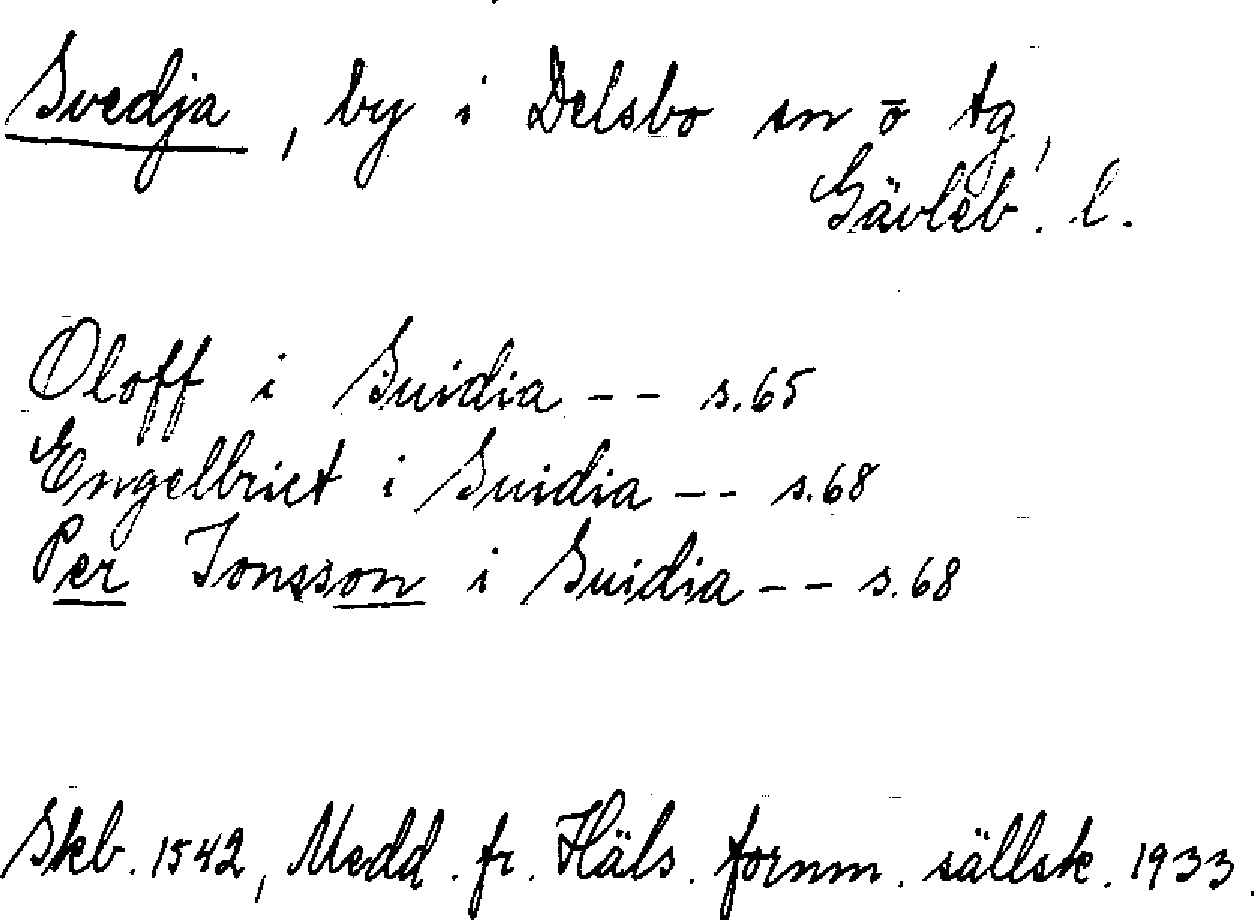 Svedja, by i Delsbo sn o tg,
Gävleb. l.
Oloff i Suidia -- s.65
Engelbrict i Suidia -- s.68
Per Jonsson i Suidia -- s.68
Skb. 1542, Medd. fr. Häls. fornm. sällsk. 1933.